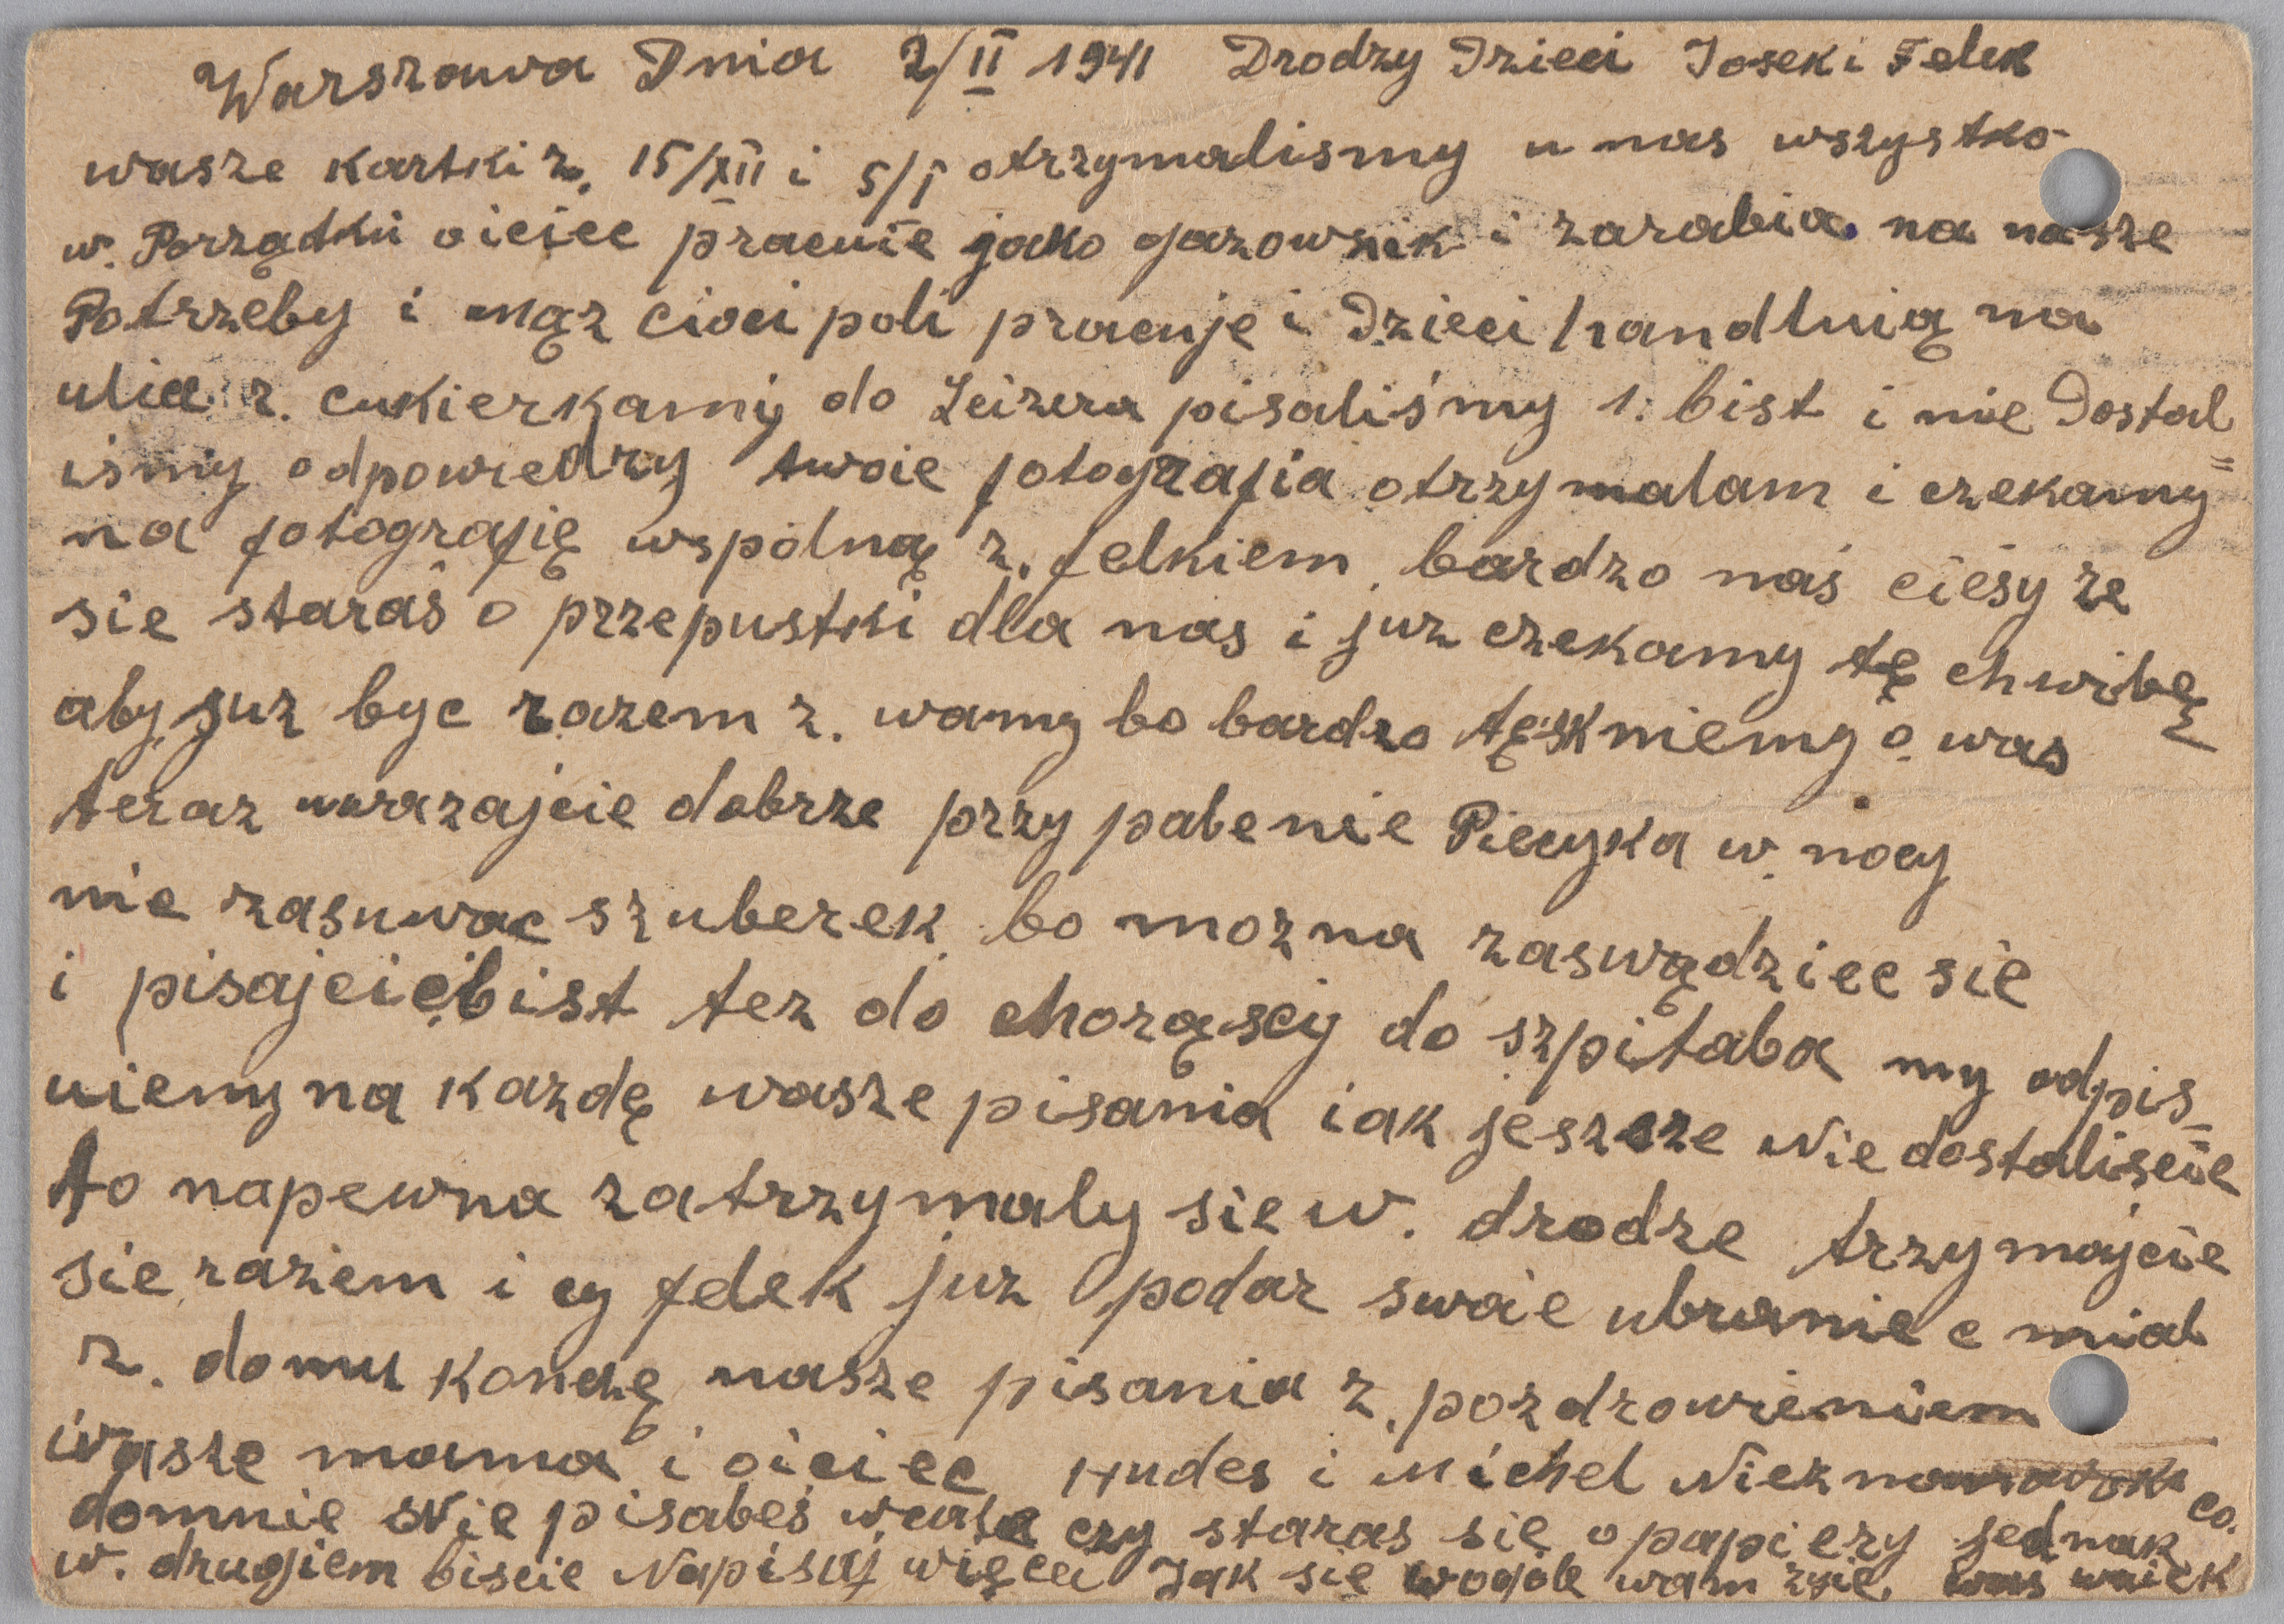 Warszawa Dnia 2/II 1941 Drodzy Dzieci Josek i Felek
wasze kartki z. 15/XII i 5/I otrzymalismy u nas wszystko
w. Porządku oiciec pracuie jako gazownik i zarabia na nasze
Potrzeby i mąz cioci poli pracuje i Dzieci handluią na
ulice z. cukierkamy do Leizera pisaliśmy 1. bist i nie Dostal
ismy odpowiedzy twoie fotografia otrzymalam i czekamy
na fotografię wspolną z. felkiem bardzo naś cieśy ze
sie staraś o przepustki dla nas i juz czekamy tę chwibę
aby juz byc razem z. wamy bo bardzo tęskniemy o was
teraz uwazajcie dobrze przy pabenie Piecyka w. nocy
nie zasuwac szuberek bo mozna zaswądziec sie
i pisajcie bist tez do chorąscy do szpitaba my odpis=
uiemy na kazdę wasze pisania iak jeszcze Nie dostaliscie
to napewna zatrzymaly sie w. drodze trzymajcie
sie razem i cy felek juz podar swoie ubranie c miab
z. domu Konczę nasze pisania z. pozdrowieniem
wasze mama i oiciec Hudes i Michel
domnie Nie pisabeś wcale czy staras sie o papiery jednak co.
w. drugiem biscie Napisaj więcei Jak sie wogóle wam zyie